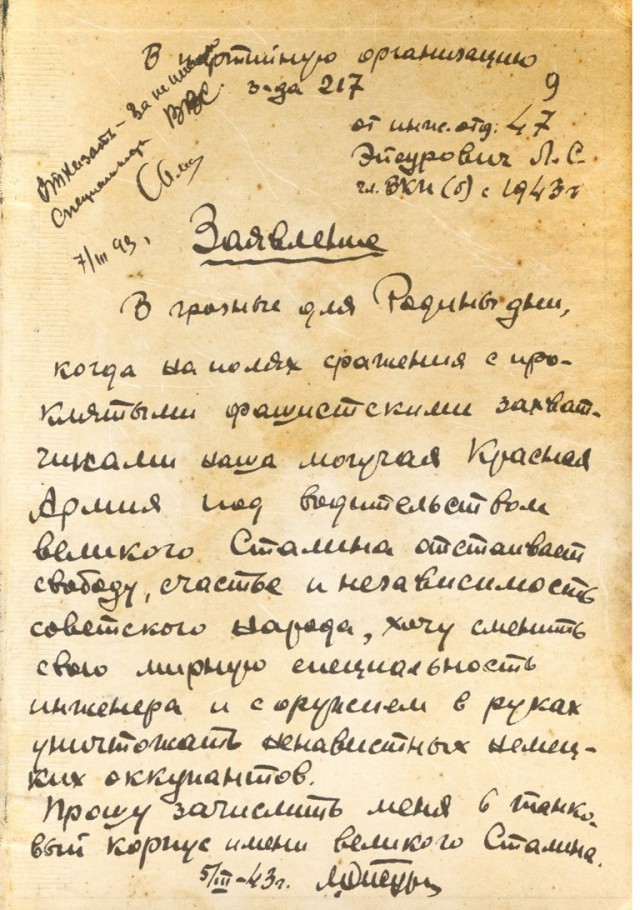 В партийную организацию
з-да 217
9
Отказать - Защищ
Специальная ВВС
7/III 43,
от инж. отд. 47
Эпеурович Л. С.
ВКП(б) с 1943 г
Заявление
В грозные для Родины дни,
когда на полях сражения с про-
клятыми фашистскими захват-
чиками наша могучая Красная
Армия под водительством
великого Сталина отстаивает
свободу, счастье и независимость
советского народа, хочу сменить
свою мирную специальность
инженера и с оружием в руках
уничтожать ненавистных немец-
ких оккупантов.
Прошу зачислить меня в танко-
вый корпус имени великого Сталина.
5/III-43 г.